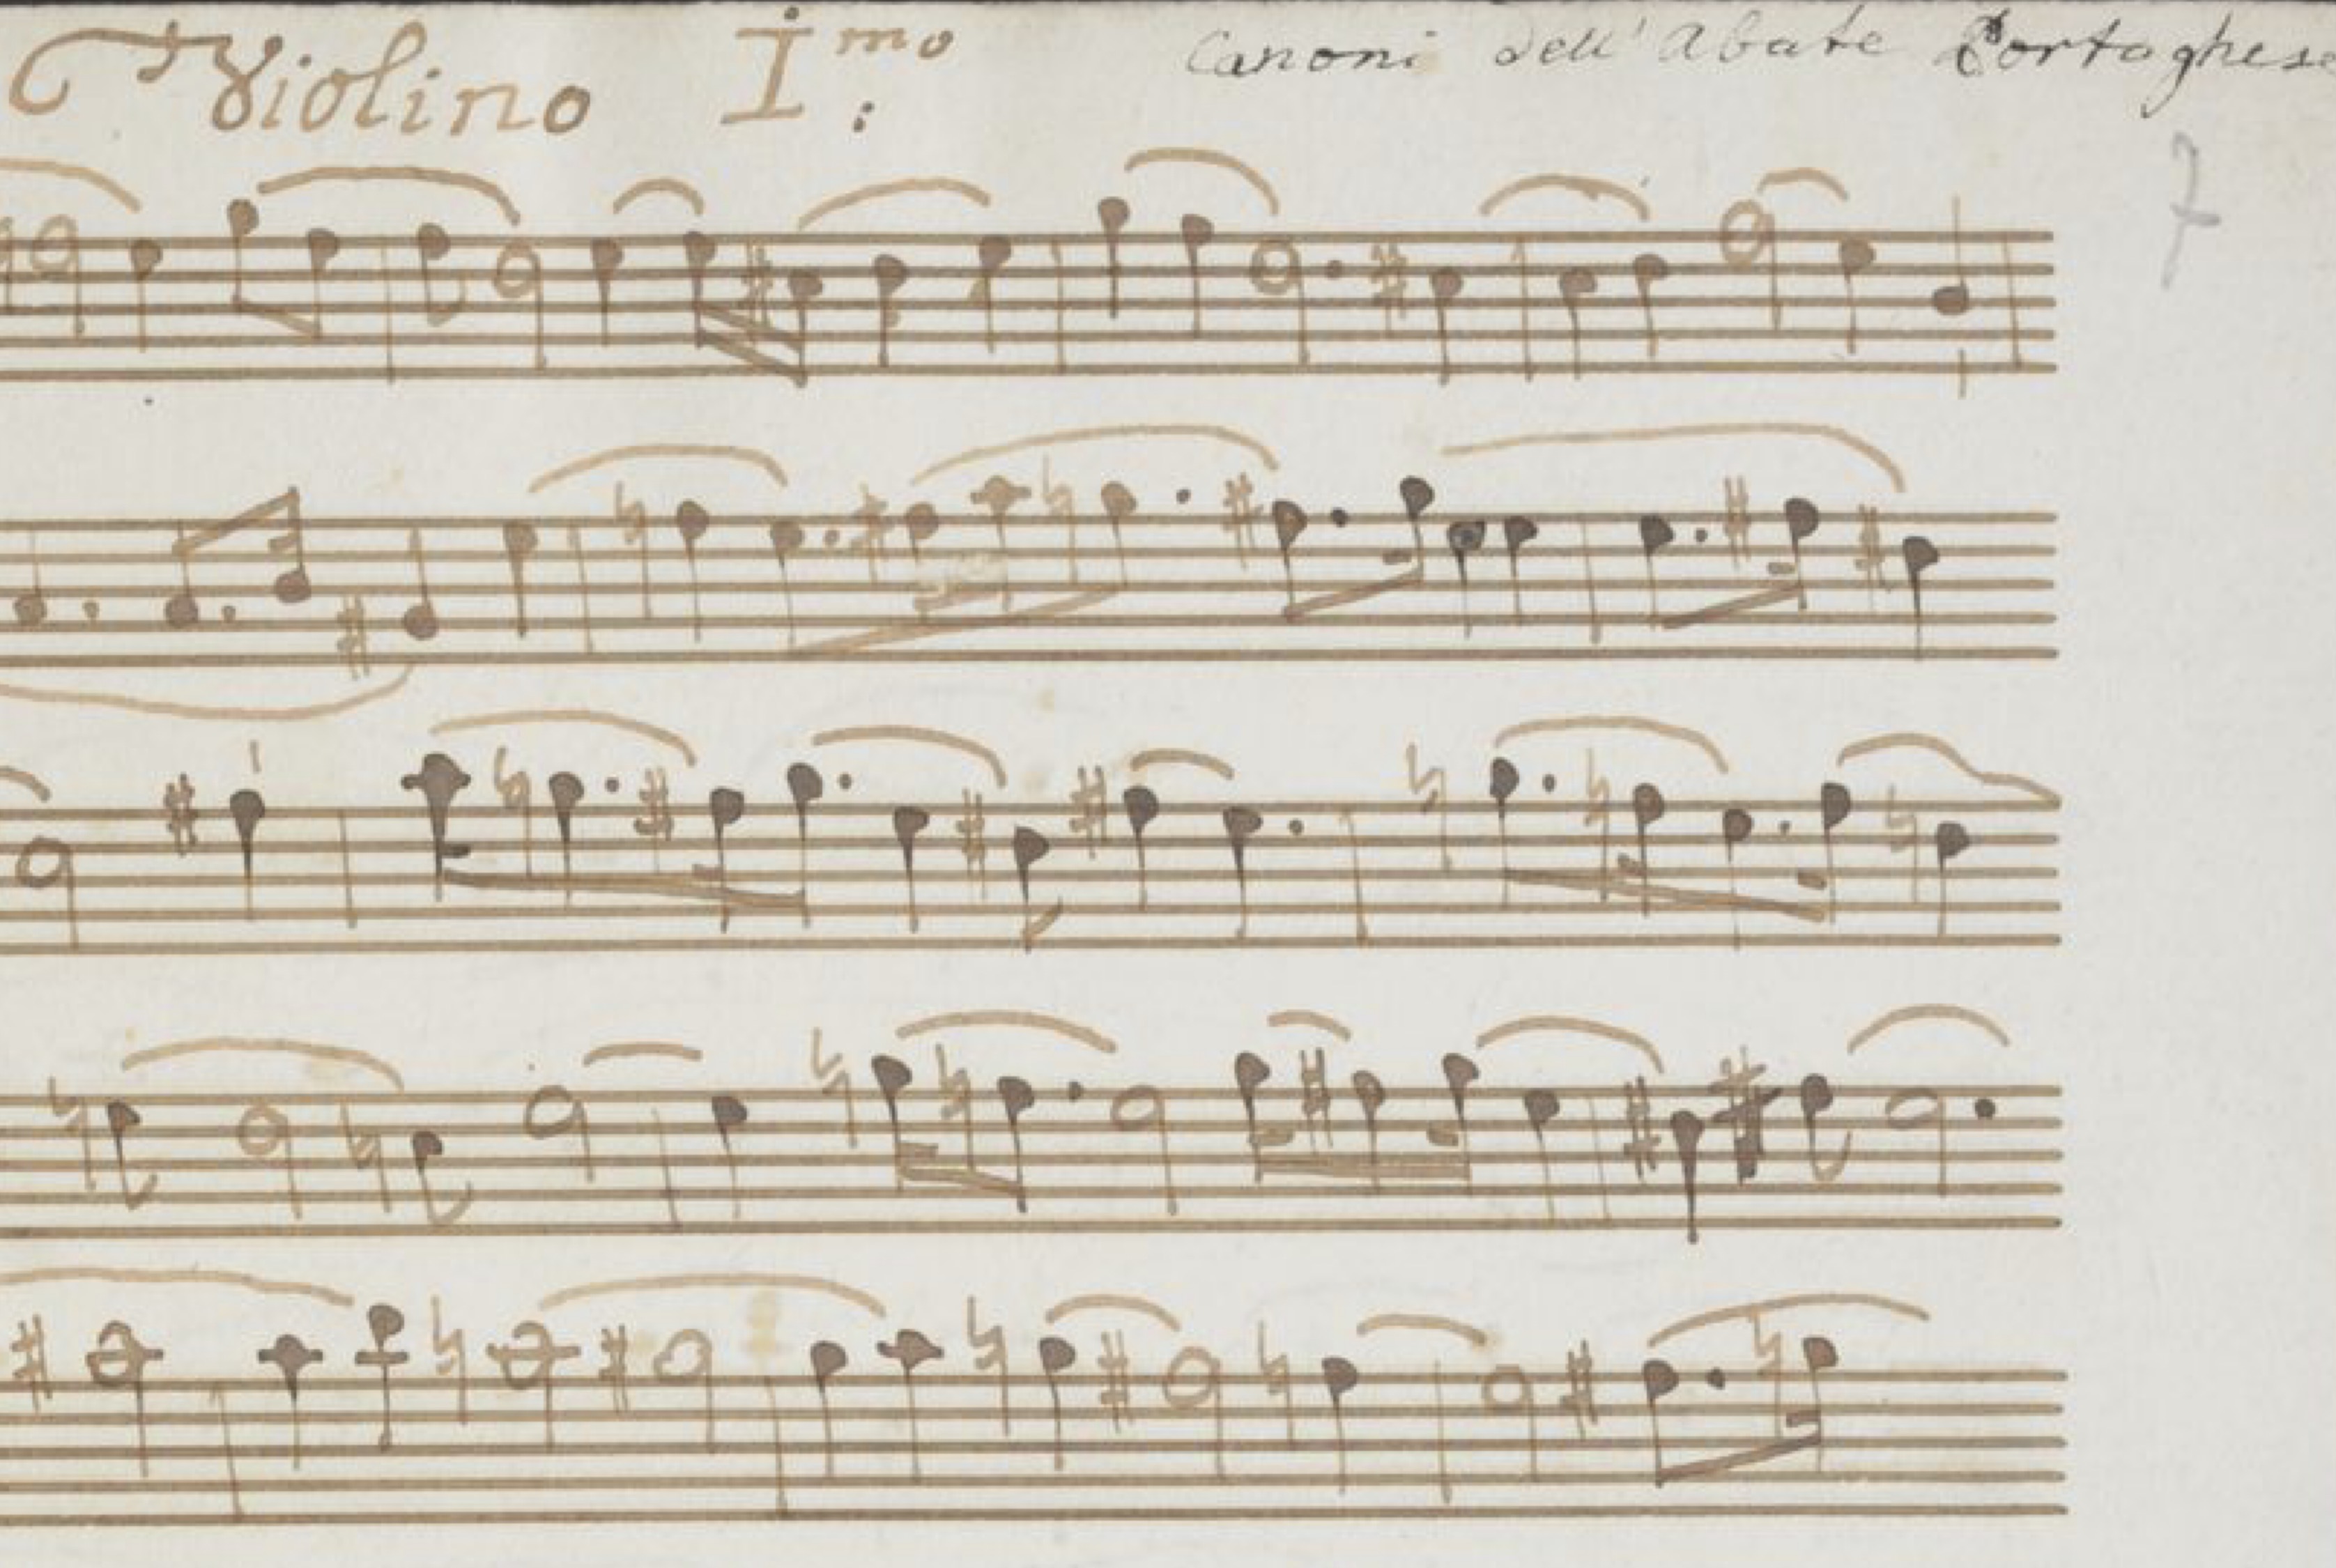 Violino Imo: Canoni dell' Abate Portoghese
7